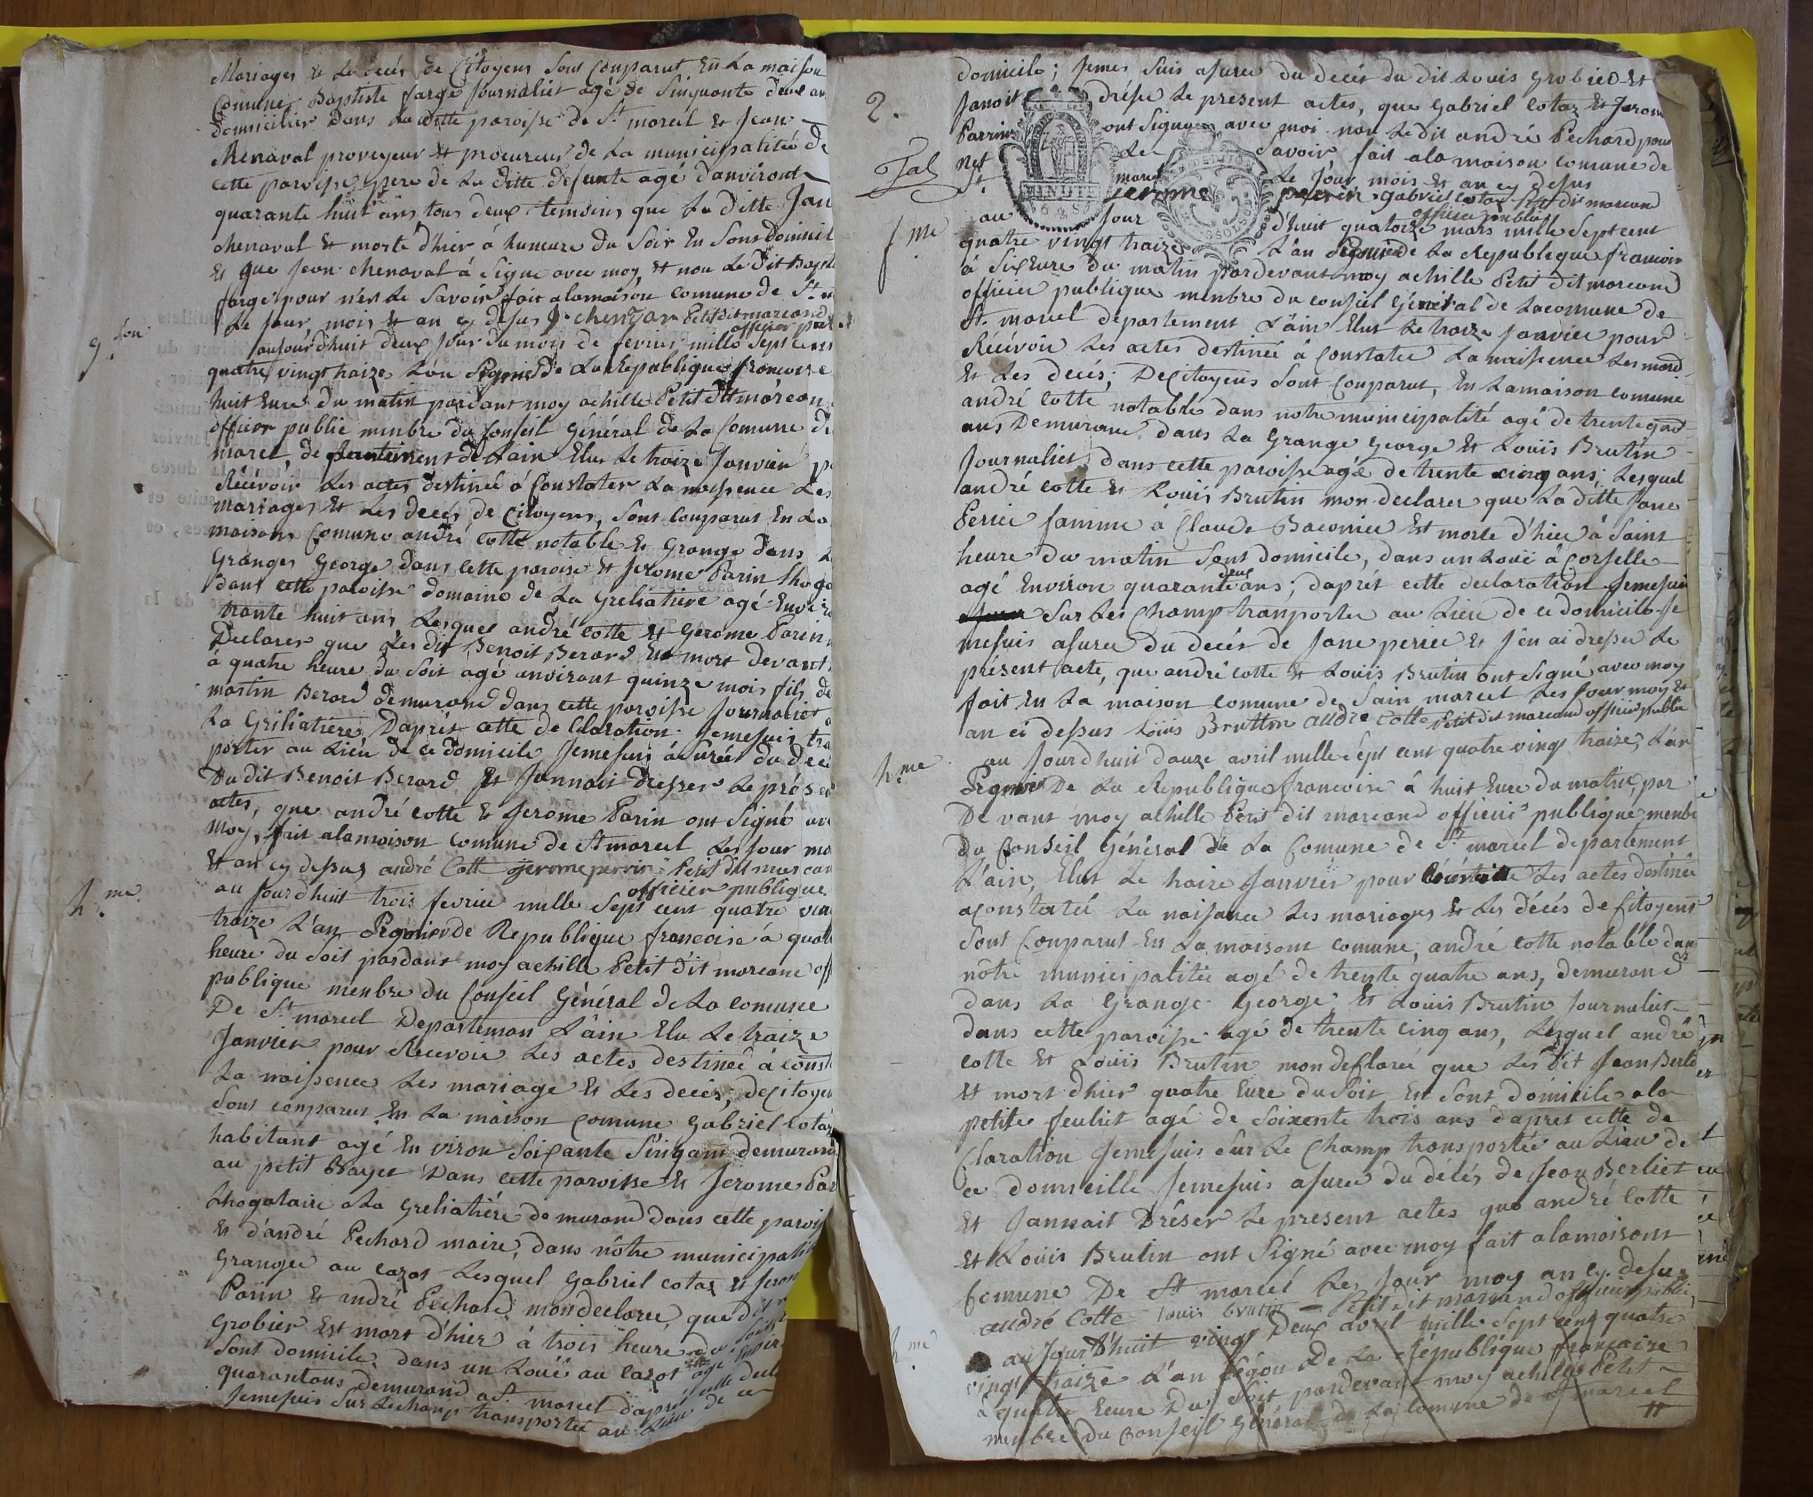 Mariages & Le decés de Citoyens sont Conparut En La maison
Comune Baptiste farge Journaliér agé de Sinquante deux an
domicilier dans La ditte paroisse de St marcél & Jean
Chenaval proveyeur & procureur de La municipalitée de
cette paroisse, pere de La ditte defunte agé d'anviront
quarante huit ans tous deux temoins que La ditte Jan
chenaval Et morte d'hier à huneure du Soir En Sons domicil
Et que Jean Chenaval à Signe avec moy & non Le Dit Baptis
farge pour n'en Le Savoir fait alamaison Comune de St m
Le Jour mois & an cy desus J. chenavar Petit Dit marcand
officier pub
9. fon
aujourd'huit deux Jour du mois de fevrier mille Sept cens
quatre vingt traize L'an Segond de La Republique francoise
huit Eure du matin pardant moy achille Petit Dit marcan
officier public menbre du Conseil Général de La Comune de
marcel, de partement de Lain Elus Le traize Janvier p
Récévoir Les actes destinée à Constater La naissence Les
mariages & Les deces de Citoyens, sont Conparus En La
maison Comune andré Cotte notable & Grange dans L
Granges George dans Cette paroise & Jerome Parin Lhoga
dans cette paroisse domaine de La Greliatiere agé Envir
trante huit ans Lesquel andré Cotte & Gerome Parin
Declarer que Les dit Benoit Berard Est mort devant
à quatre heure du Soit agé anviront quinze mois fils de
martin Berard demurand dans cette paroisse Journalier
La Griliatiere, D'aprés cette de Claration Jemesuis tra
porter au Lieu de ce domicile Jemesuis asurée du dece
Du dit Benoit Berard Et Jannait Dresser Le présen
actes, que andré Cotte & Jerome Parin ont Signé av
moy, fait alamaison Comune de St marcel Les Jour mo
Et an cy dessus andré Cott Jerome perrin Petit Dit marcan
officier publique
h.me
au Jourdhuit trois fevrier mille Sept cent quatre vin
traize L'an Segond de Republique francoise à quatr
heure du Soit pardant moy achille Petit dit marcand off
publique menbre du Conseil Général de La comune
De St marcel Departeman L'ain Elu Le traize
Janvier pour Recevoir Les actes destinée à const
La naissence Les mariage Et Les decés, de Citoyen
Sont conparus En La maison Comune Gabriel Cotaz
habitant agé En viron Soixante Sinqans demurand
au petit Brayet Dans cette paroisse & Jerome Par
Lhogataire a La Greliatiére demurand dans cette parois
Et d'andré Pechard maire, dans nôtre municipali
Granger au cazot Lesquel Gabriel cotaz & Jerom
Parin & andré Pechard mon declarer que dit
Grobier Est mort d'hier à trois heure
Sont domicile dans un Louéé au cazot agé
quarantans demurand a St marcel d'aprés
Jemesuis Sur Lechamp transportée au Lieu de ce
2.
domicile; Jemes Suis asurée du decés du dit Louis Grobier & 
Janoit drésse Le present actes, que Gabriel Cotaz & Jerom
Parrin ont Signer avec moi non Le dit andré Pechard pour
net Le Savoir, fait ala maison comune de
St. marcel Le Jour mois & an cy desus
jerome perrin Gabriel cotaz Petit dit marcand
officier public
MINUTE
f. me
au Jour d'huit quatorze mars mille Sept cent
quatre vingt traize L'an Segond de La Republique francoise
à Sis Eure du matin pardevant moy achille Petit dit marcand
officier publique menbre du conseil Général de Lacomune de
St. marcel departement L'ain Elus Le traize Janvier pour
Recévoir Les actes destinée à Constater La naissence Les mariag
Et Les deces; De Citoyens Sont Conparut, En Lamaison comune
andré Cotte notable dans notre municipalité agé de trente quat
ans Demurant dans La Grange George & Louis Brutin
Journaliés dans cette paroisse agée de trente cinq ans; Lesquel
andré cotte & Louis Brutin mon declarer que La ditte Jane
Perrier famme à Claude Baconnier Est morte d'hier à Saint
heure du matin Sont domicile, dans un Loué à Corselle
agé Environ quarante deux ans; daprés cette déclaration Jemesuis
Sur Les Champ tranporter au Lieu de ce domicile Je
mesuis asurée Du decés de Jane perrier & J'en ai dressée Le
présent acte, que andré cotte & Louis Brutin ont Signé avec moy
fait En La maison comune de Sain marcel Les Jour moy &
an ci dessus Loüis Bruttin andré cotte Petit dit marcand officier public
h. me
au Jourdhuit douze avril mille Sept cent quatre vingt traize, L'an
Segond De La Republique francoise à huit Eure du matin, par
De vant moy achille Petit dit marcand officier publique, menbr
Du Conseil Général de La Comune de St marcel departement
L'ain, Elus Le traize Janvier pour Les actes destinée
aConstatée La naissance Les mariages & Les décés de Citoyens
Sont Conparut En La maisont comune, andré cotte notable dans
nôtre municipalitée agé de trente quatre ans, demurand
dans La Grange George & Louis Brutin Journaliér
dans cette paroisse agé de trente cinq ans, Lesquel andré
cotte Et Louis Brutin mon declarer que Les Dit Jean Berliet
Et mort dhier quatre Eure du Soit En Sont domicile ala
petite feulit agé de Soixente trois ans d'apret cette de
Claration Jemesuis Sur Le Champ transportée au Lieu de
ce domicille Jemesuis asurée du decés de Jean Berliet
Et Jannait Dréser Le present actes que andré Cotte
Et Louis Brutin ont Signé avec moy fait alamaisont
Comune De St marcel Les Jour moy an Cy desu
andré Cotte louis brutin Petit dit marcand officier publi
h. me
au Jour d'huit vingt Deux avril mille Sept cent quatre
vingt traize L'an Segon De La république francaise
a quatre Eeure Du Soit pardevant moy achille Petit
menbre du Conseil Général de La Comune de St marcel